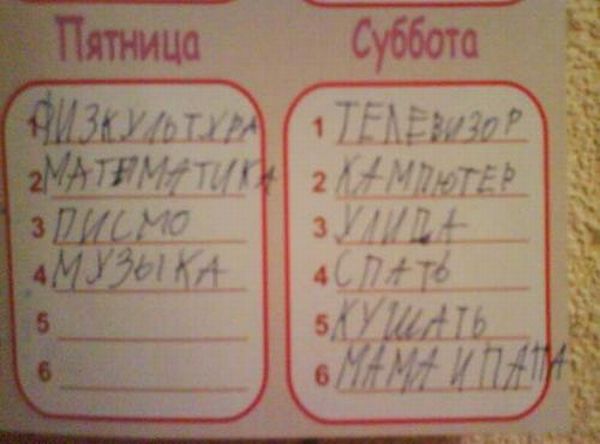 Пятница
1 ФИЗКУЛЬТУРА
2 МАТЕМАТИКА
3 ПИСМО
4 МУЗЫКА
5
6
Суббота
1 ТЕЛЕВИЗОР
2 КАМПЮТЕР
3 УЛИЦА
4 СПАТЬ
5 КУШАТЬ
6 МАМА И ПАПА